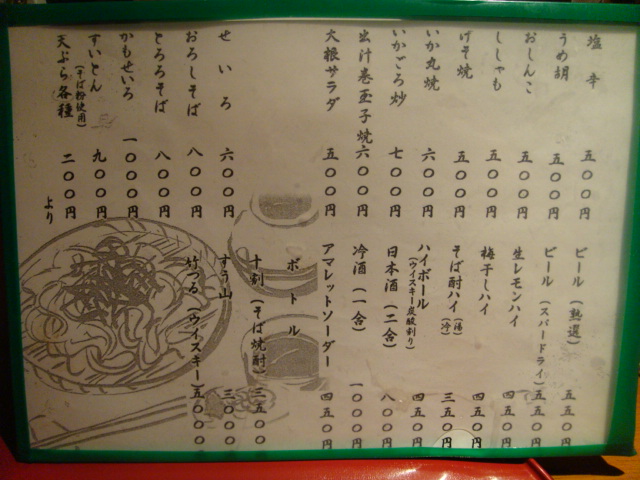 塩辛 五〇〇円
うめ胡 五〇〇円
おしんこ 五〇〇円
ししゃも 五〇〇円
げそ焼 五〇〇円
いか丸焼 六〇〇円
いかごろ炒 七〇〇円
出汁巻玉子焼 六〇〇円
大根サラダ 五〇〇円
せいろ 六〇〇円
おろしそば 八〇〇円
とろろそば 八〇〇円
かもせいろ 一〇〇〇円
すいとん (そば粉使用) 九〇〇円
天ぷら各種 二〇〇円より
ビール (熟選) 五五〇円
ビール (スパードライ) 五五〇円
生レモンハイ 五〇円
梅干しハイ 四五〇円
そば酎ハイ (湯) (冷) 三五〇円
ハイボール (ウイスキー炭酸割り) 四五〇円
日本酒 (二合) 八〇〇円
冷酒 (一合) 一〇〇〇円
アマレットソーダー 四五〇円
ボトル
十割 (そば焼酎) 三五〇〇
すう山 三〇〇〇
竹つる (ウイスキー) 五〇〇〇